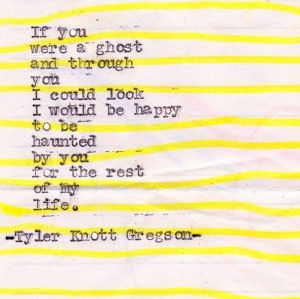 If you
were a ghost
and through
you
I could look
I would be happy
to be
haunted
by you
for the rest
of my
life.
-Tyler Knott Gregson-